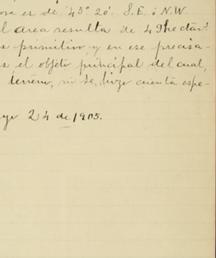 es de 45° 20'. S.E. á N.W.
area resulta de 49 hectar
primitivo y en ese precisa
el objeto principal del cual,
terreno, no se hizo cuenta espe-
24 de 1905.